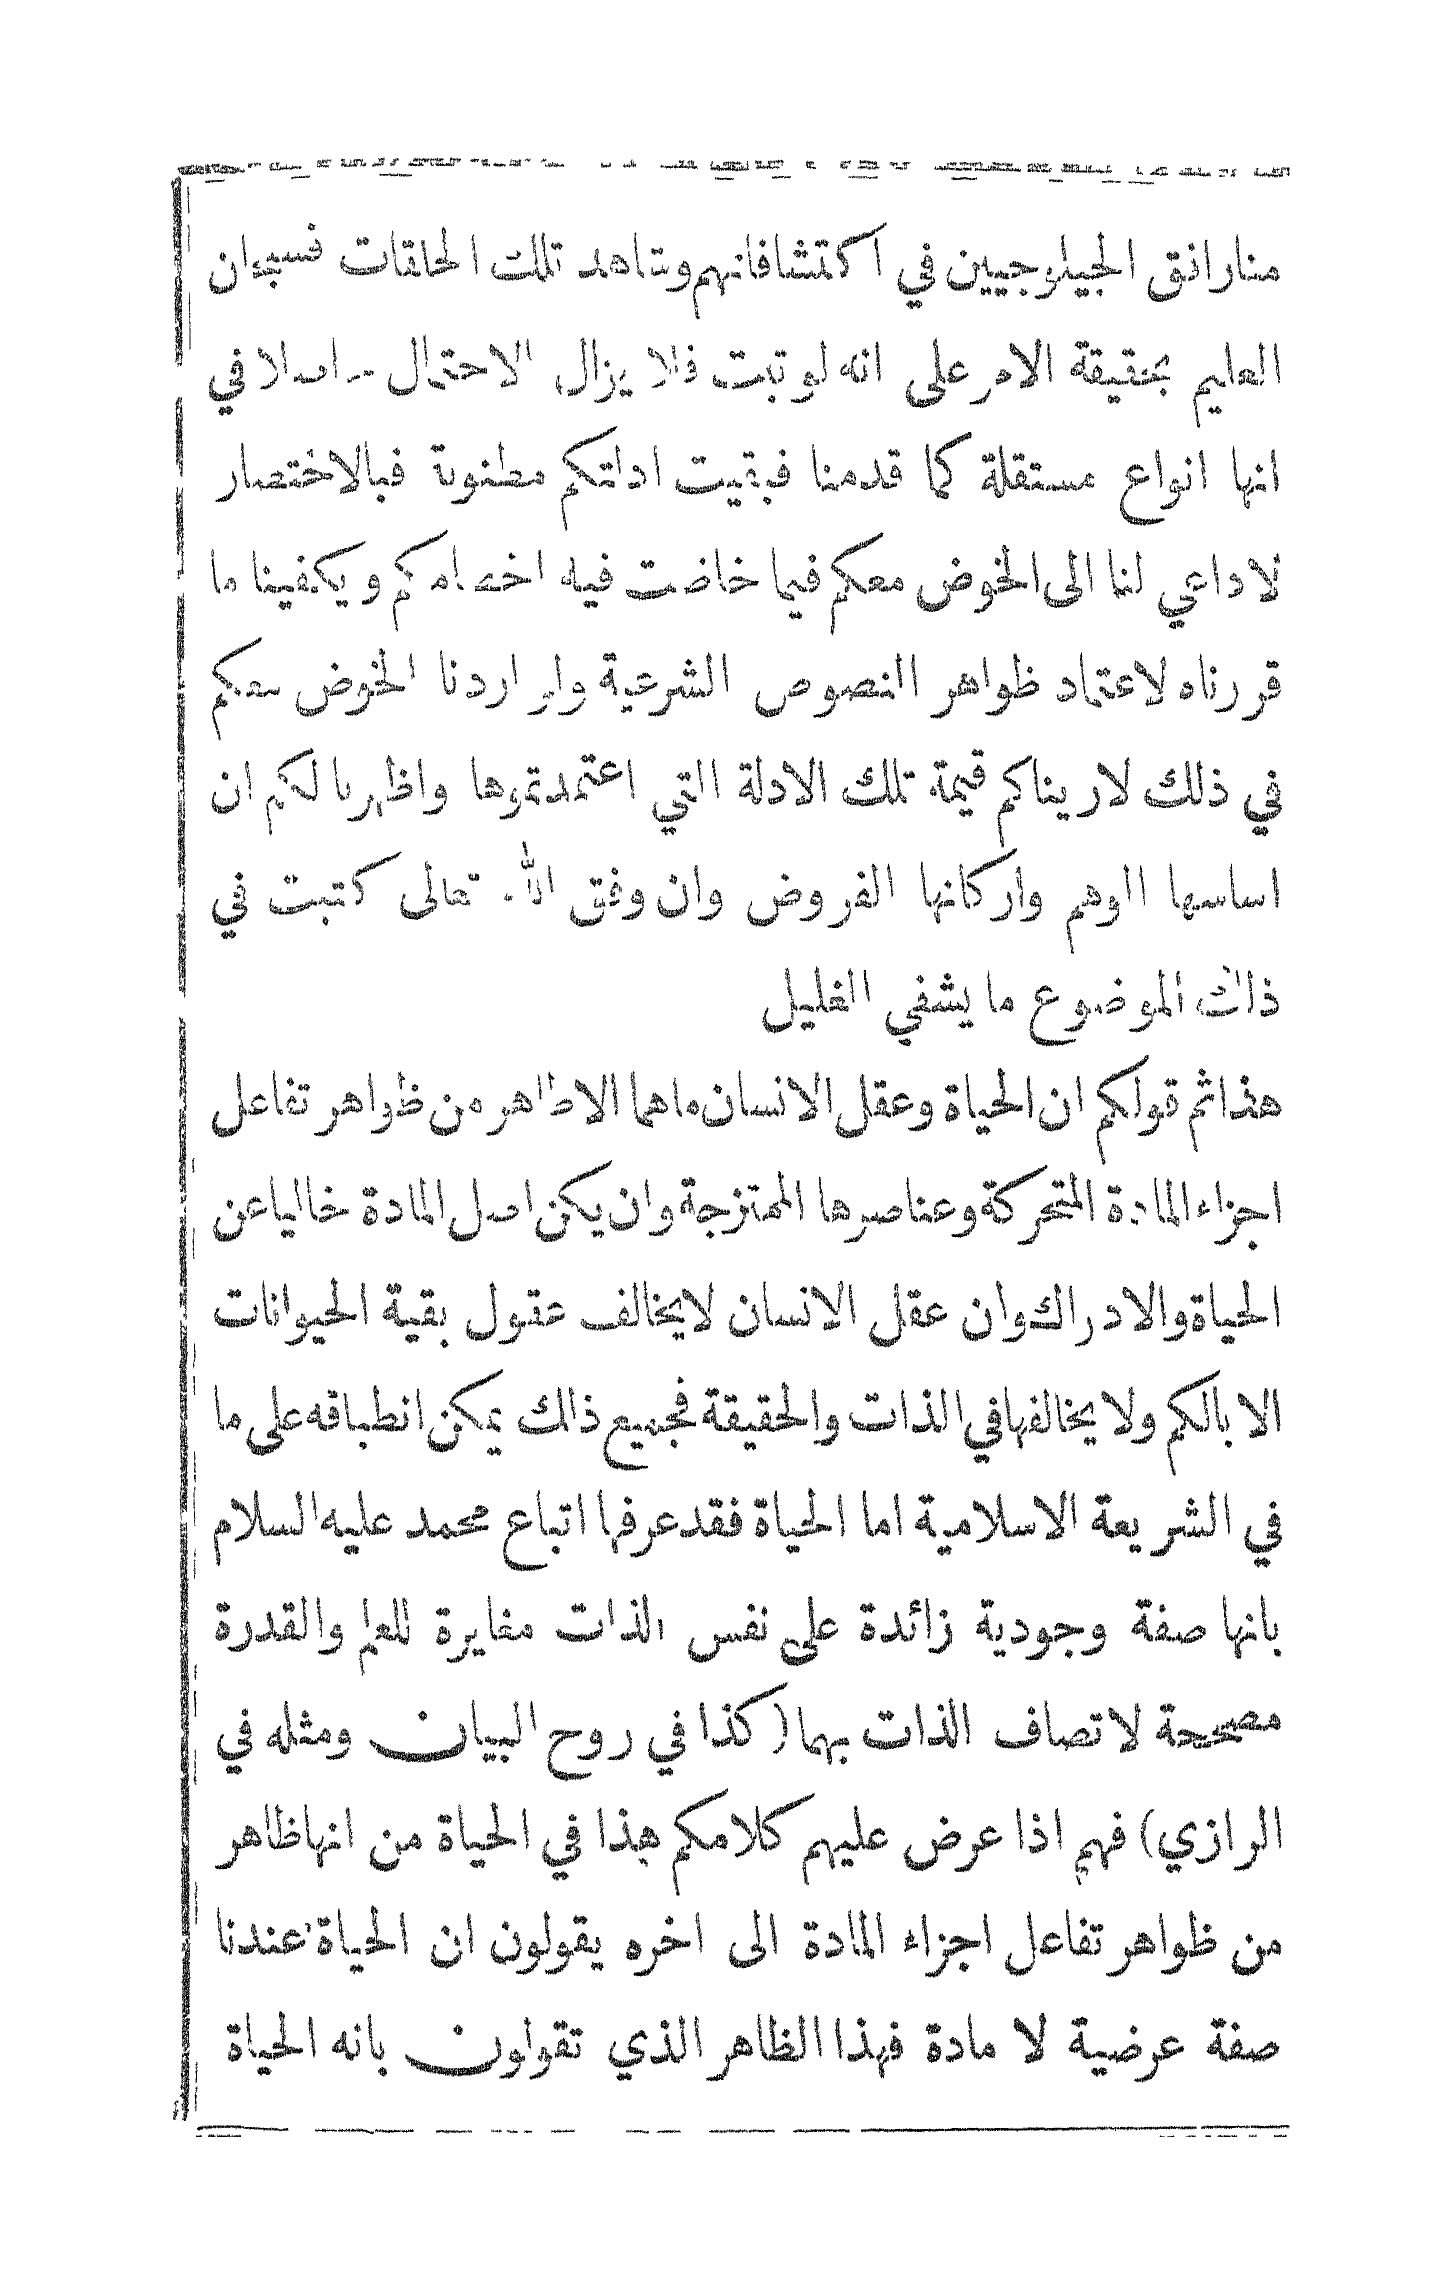 منا رافق الجيلوجيين في اكتشافاتهم وشاهد تلك الحلقات فسبحان
العليم بحقيقة الامر على انه لو ثبت فلا يزال الاحتمال حاصلا في
انها انواع مستقلة كما قدمنا فبقيت ادلتكم مظنونة فبالاختصار
لا داعي لنا الى الخوض معكم فيما خاضت فيه و يكفينا ما
قررناه لاعتماد ظواهر النصوص الشرعية ولو اردنا الخوض معكم
في ذلك لاريناكم قيمة تلك الادلة التي اعتمدتموها واظهرنا لكم ان
اساسها الوهم واركانها الفروض وان وفق الله تعالى كتبت في
ذلك الموضوع ما يشفي الغليل
هذا ثم قولكم ان الحياة وعقل الانسان ما هما الا ظاهر من ظواهر تفاعل
اجزاء المادة المتحركة وعناصرها الممتزجة وان يكن اصل المادة خاليا عن
الحياة والادراك وان عقل الانسان لا يخالف عقول بقية الحيوانات
الا بالكم ولا يخالفها في الذات والحقيقة فجميع ذلك يمكن انطباقه على ما
في الشريعة الاسلامية اما الحياة فقد عرفها اتباع محمد عليه السلام
بانها صفة وجودية زائدة على نفس الذات مغايرة للعلم والقدرة
مصححة لاتصاف الذات بهما (كذا في روح البيان ومثله في
الرازي) فهم اذا عرض عليهم كلامكم هذا في الحياة من انها ظاهر
من ظواهر تفاعل اجزاء المادة الى اخره يقولون ان الحياة عندنا
صفة عرضية لا مادة فهذا الظاهر الذي تقولون بانه الحياة